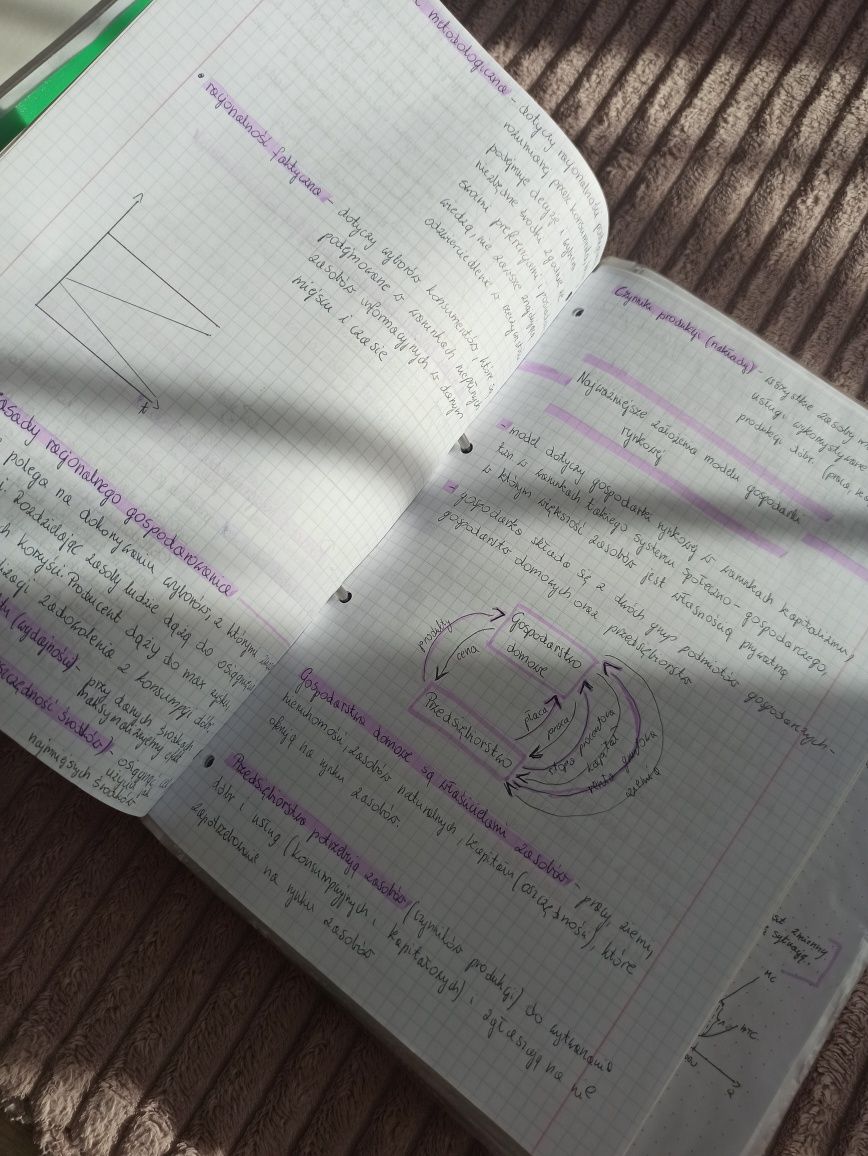 metodologiczna - dotyczy racjonalności
rozumianej przez konsumenta
podejmuje decyzje i
niezbędne środki zgodnie z
swoimi preferencjami i
wiedzą, nie zawsze
odzwierciedlenie w
• racjonalność faktyczna - dotyczy wyborów konsumentów, które są
podejmowane w warunkach niepełnych
zasobów informacyjnych w danym
miejscu i czasie
zasady racjonalnego gospodarowania
polega na dokonywaniu wyborów, z którymi
Rozdzielając zasoby ludzie dążą do osiągnięcia
korzyści. Producent dąży do max zysku,
zadowolenia z konsumpcji dóbr.
(wydajności) - przy danych środkach
maksymalizujemy efekt
oszczędność środków) - osiągnięcie
użyciu jak
najmniejszych środków
• Czynniki produkcji (nakłady) - wszystkie zasoby
usługi wykorzystywane
produkcji dóbr. (praca,
Najważniejsze założenia modelu gospodarki
rynkowej
- model dotyczy gospodarki rynkowej w warunkach kapitalizmu,
tzn w warunkach takiego systemu społeczno-gospodarczego,
w którym większość zasobów jest własnością prywatną
- gospodarka składa się z dwóch grup podmiotów gospodarczych -
gospodarstw domowych oraz przedsiębiorstw
Gospodarstwo
domowe
produkty
cena
Przedsiębiorstwo
płaca
praca
stopa procentowa
kapitał
renta gruntowa
ziemia
Gospodarstwa domowe są właścicielami zasobów - pracy, ziemi,
nieruchomości, zasobów naturalnych, kapitału (oszczędności), które
oferują na rynku zasobów.
• Przedsiębiorstwa potrzebują zasobów (czynników produkcji) do wytwarzania
dóbr i usług (konsumpcyjnych i kapitałowych) i zgłaszają na nie
zapotrzebowanie na rynku zasobów
zmienny
sytuację.
MC
ATC
Q